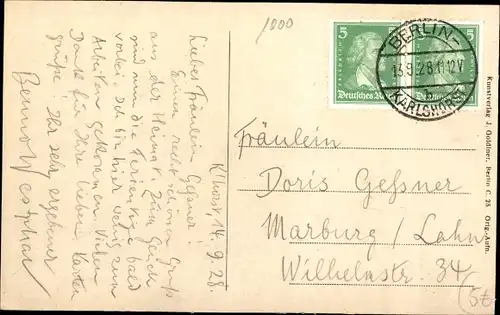 1000
K'horst, 14.9.28.
Liebes Fräulein
Geßner!
Einen recht schönen Gruß
aus der Heimat! Zum Glück
sind nun die Ferientage bald
vorbei. Ich bin hier wenig zum
Arbeiten gekommen. Vielen
Dank für Ihre lieben Karten
grüße! Ihr sehr ergebener
Benno
5
5
FRIEDRICH
Deutsches Reich
BERLIN-
13.9.28.11-12V
KARLSHORST
Fräulein
Doris Geßner
Marburg / Lahn
Wilhelmstr. 34/
Kunstverlag J. Goldiner, Berlin C. 25 Orig.-Aufn.